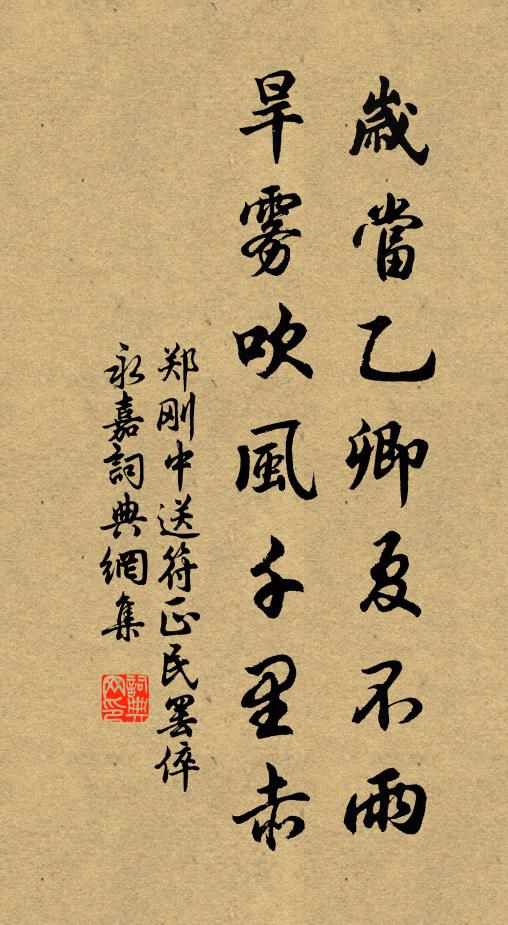 歲當乙卿夏不雨
旱雾吹風千里赤
郑刚中送符正民罢倅
永嘉詞典網集
詞典